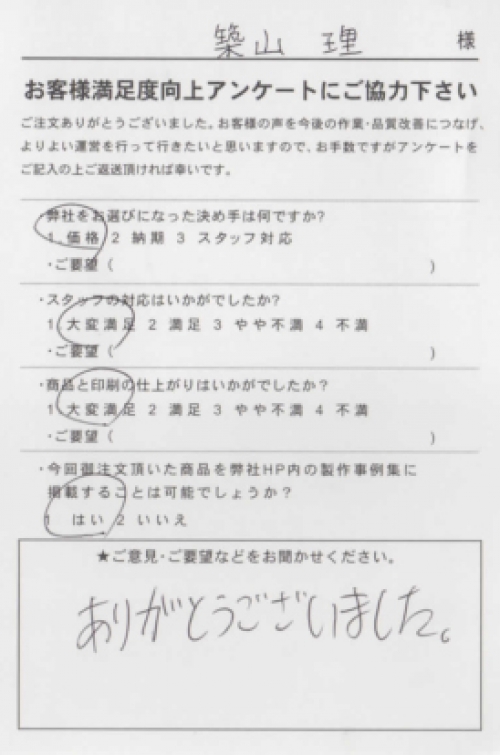 築山 理 様
お客様満足度向上アンケートにご協力下さい
ご注文ありがとうございました。お客様の声を今後の作業・品質改善につなげ、
よりよい運営を行って行きたいと思いますので、お手数ですがアンケートを
ご記入の上ご返送頂ければ幸いです。
・弊社をお選びになった決め手は何ですか?
1 価格 2 納期 3 スタッフ対応
・ご要望( )
・スタッフの対応はいかがでしたか?
1 大変満足 2 満足 3 やや不満 4 不満
・ご要望( )
・商品と印刷の仕上がりはいかがでしたか?
1 大変満足 2 満足 3 やや不満 4 不満
・ご要望( )
・今回御注文頂いた商品を弊社HP内の製作事例集に
掲載することは可能でしょうか?
1 はい 2 いいえ
★ご意見・ご要望などをお聞かせください。
ありがとうございました。